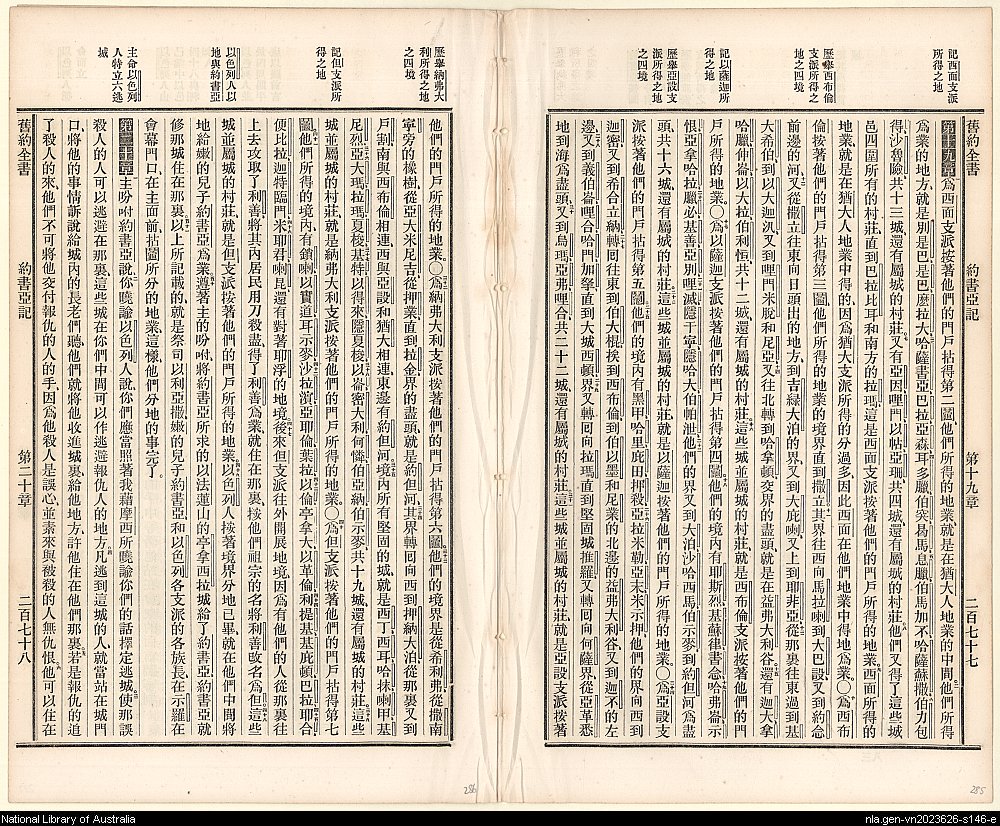 記西面支派
所得之地
歷舉西布倫
支派所得之
地之四境
記以薩迦所
得之地
歷舉亞設支
派所得之地
之四境
舊約全書 約書亞記 第十九章 二百七十七
第十九章爲西面支派按著他們的門戶拈得第二鬮他們所得的地業就是在猶大人地業的中間他們所得
爲業的地方就是別是巴是巴麽拉大哈薩書亞巴拉亞森耳多臘伯突曷馬息臘伯馬加不哈薩蘇撒伯力包
得沙魯險共十三城還有屬城的村莊又有亞因哩門以帖亞珊共四城還有屬城的村莊他們又得了這些城
邑四圍所有的村莊直到巴拉比耳和南方的拉瑪這是西面支派按著他們的門戶所得的地業西面所得的
地業就是在猶大人地業中得的因爲猶大支派所得的分過多因此西面在他們地業中得地爲業〇爲西布
倫按著他們的門戶拈得第三鬮他們所得的地業的境界直到撒立其界往西向馬拉喇到大巴設又到約念
前邊的河又從撒立往東向日頭出的地方到吉綠大泊的界又到大庇喇又上到耶非亞從那裏往東過到基
大希伯到以大迦汎又到哩門米脫和尼亞又往北轉到哈拿頓交界的盡頭就是在益弗大利谷還有迦大拿
哈臘伸崙以大拉伯利恒共十二城還有屬城的村莊這些城並屬城的村莊就是西布倫支派按著他們的門
戶所得的地業〇爲以薩迦支派按著他們的門戶拈得第四鬮他們的境內有耶斯烈基蘇律書念哈弗崙示
恨亞拿哈拉臘必基善亞別哩滅隱干寧隱哈大伯帕泄他們的界又到大泊沙哈西馬伯示麥到約但河爲盡
頭共十六城還有屬城的村莊這些城並屬城的村莊就是以薩迦按著他們的門戶所得的地業〇爲亞設支
派按著他們的門戶拈得第五鬮他們的境內有黑甲哈里庇田押殺亞拉米勒亞末米示押他們的界向西到
迦密又到希合立納轉囘往東到伯大棍挨到西布倫到伯以墨和尼業的北邊的益弗大利谷又到迦不的左
邊又到義伯崙哩合哈門加拏直到大城西頓界又轉囘向拉瑪直到堅固城推羅又轉囘向何薩界從亞革悉
地到海爲盡頭又到烏瑪亞弗哩合共二十二城還有屬城的村莊這些城並屬城的村莊就是亞設支派按著
歷舉納弗大
利所得之地
之四境
記但支派所
得之地
以色列人以
地與約書亞
主命以色列
人特立六逃
城
他們的門戶所得的地業〇爲納弗大利支派按著他們的門戶拈得第六鬮他們的境界是從希利弗從撒南
寧旁的橡樹從亞大米尼吉從押業直到拉金界的盡頭就是約但河其界轉囘向西到押納大泊從那裏又到
戶割南與西布倫相連西與亞設和猶大相連東邊有約但河境內所有堅固的城就是西丁西耳哈抹喇甲基
尼烈亞大瑪拉瑪夏梭基特以得來隱夏梭以崙密大利何憐伯亞納伯示麥共十九城還有屬城的村莊這些
城並屬城的村莊就是納弗大利支派按著他們的門戶所得的地業〇爲但支派按著他們的門戶拈得第七
鬮他們所得的境內有鎖喇以實道耳示麥沙拉濱亞耶倫葉拉以倫亭拿大以革倫利提基基庇頓巴拉耶合
便比拉迦特臨門米耶君喇昆還有對著耶浮的地境後來但支派往外開展地境因爲有他們的人從那裏往
上去攻取了利善將其內居民用刀殺盡得了利善爲業就住在那裏按他們祖宗的名將利善改名爲但這些
城並屬城的村莊就是但支派按著他們的門戶所得的地業以色列人按著境界分地已畢就在他們中間將
地給嫩的兒子約書亞爲業遵著主的吩咐將約書亞所求的以法蓮山的亭拿西拉城給了約書亞約書亞就
修那城住在那裏以上所記載的就是祭司以利亞撒嫩的兒子約書亞和以色列各支派的各族長在示羅在
會幕門口在主面前拈鬮所分的地業這樣他們分地的事完了
第二十章主吩咐約書亞說你曉諭以色列人說你們應當照著我藉摩西所曉諭你們的話擇定逃城使那誤
殺人的人可以逃避在那裏這些城在你們中間可以作逃避報仇人的地方凡逃到這城的人就當站在城門
口將他的事情訴說給城內的長老們聽他們就將他收進城裏給他地方許他住在他們那裏若是報仇的追
了殺人的來他們不可將他交付報仇的人的手因爲他殺人是誤心並素來與被殺的人無仇恨他可以住在
舊約全書 約書亞記 第二十章 二百七十八
286
285
National Library of Australia
nla.gen-vn2023626-s146-e